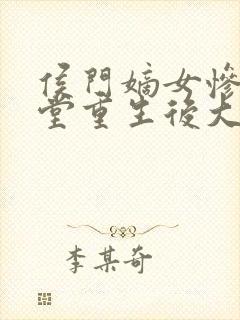 侯門嫡女慘
堂重生後大
李某奇